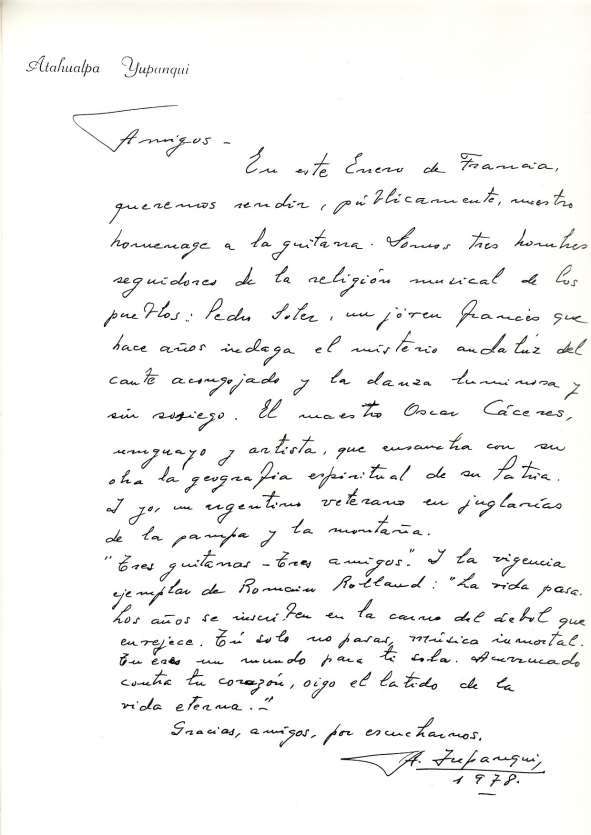 Atahualpa Yupanqui
Amigos -
En este Enero de Francia,
queremos rendir, públicamente, nuestro
homenage a la guitarra. Somos tres hombres
seguidores de la religión musical de los
pueblos: Pedro Soler, un jóven francés que
hace años indaga el misterio andalúz del
cante acongojado y la danza luminosa y
sin sosiego. El maestro Oscar Cáceres,
uruguayo y artista, que ensancha con su
obra la geografia espiritual de su Patria.
I yo, un argentino veterano en juglarías
de la pampa y la montaña.
"Tres guitarras - Tres amigos". I la vigencia
ejemplar de Romain Rolland: "La vida pasa.
Los años se inscriben en la carne del árbol que
envejece. Tú solo no pasas, música inmortal.
Tu éres un mundo para ti sola. Acurrucado
contra tu corazón, oigo el latido de la
vida eterna."
Gracias, amigos, por escucharnos.
A. Yupanqui,
1978.